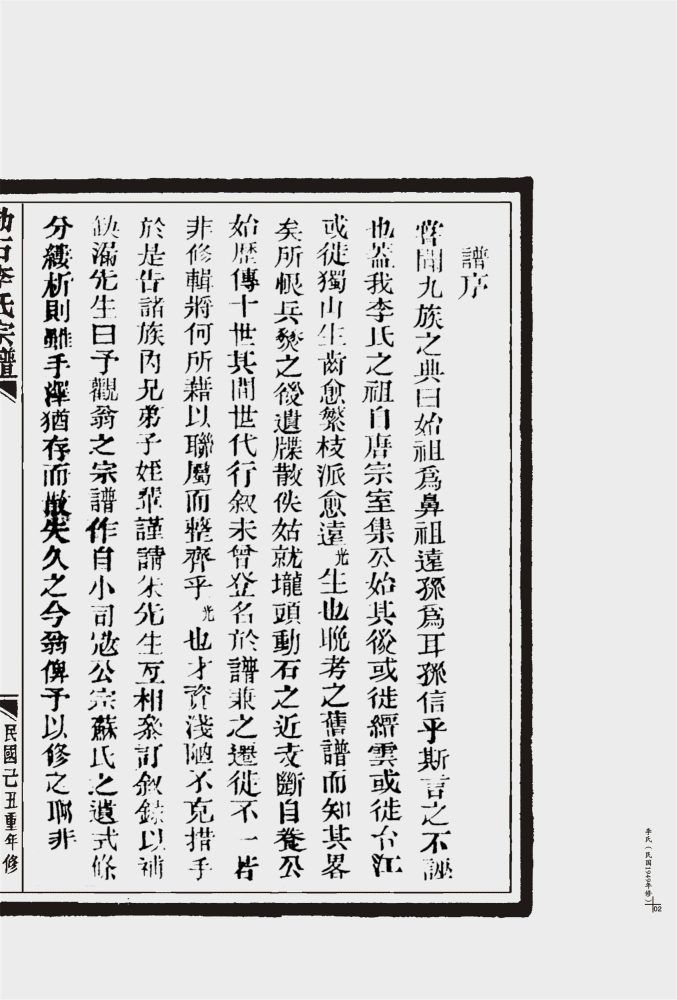 譜序
嘗聞九族之典曰始祖爲鼻祖遠孫爲耳孫信乎斯言之不誣
也蓋我李氏之祖自唐宗室集公始其後或徙縉雲或徙台江
或徙獨山生齒愈繁枝派愈遠光生也晚考之舊譜而知其畧
矣所恨兵燹之後遺牒散佚姑就壠頭動石之近支斷自養公
始歷傳十世其間世代行叙未曾登名於譜兼之遷徙不一若
非修輯將何所藉以聯屬而整齊乎光也才資淺陋不克措手
於是告諸族內兄弟子姪輩謹請朱先生互相叅訂叙錄以補
缺漏先生曰予觀翁之宗譜作自小司寇公宗蘇氏之遺式條
分縷析則雖手澤猶存而散失久之今翁俾予以修之聊非
動石李氏宗譜
民國己丑重年修
李氏（民国1949年修）
02